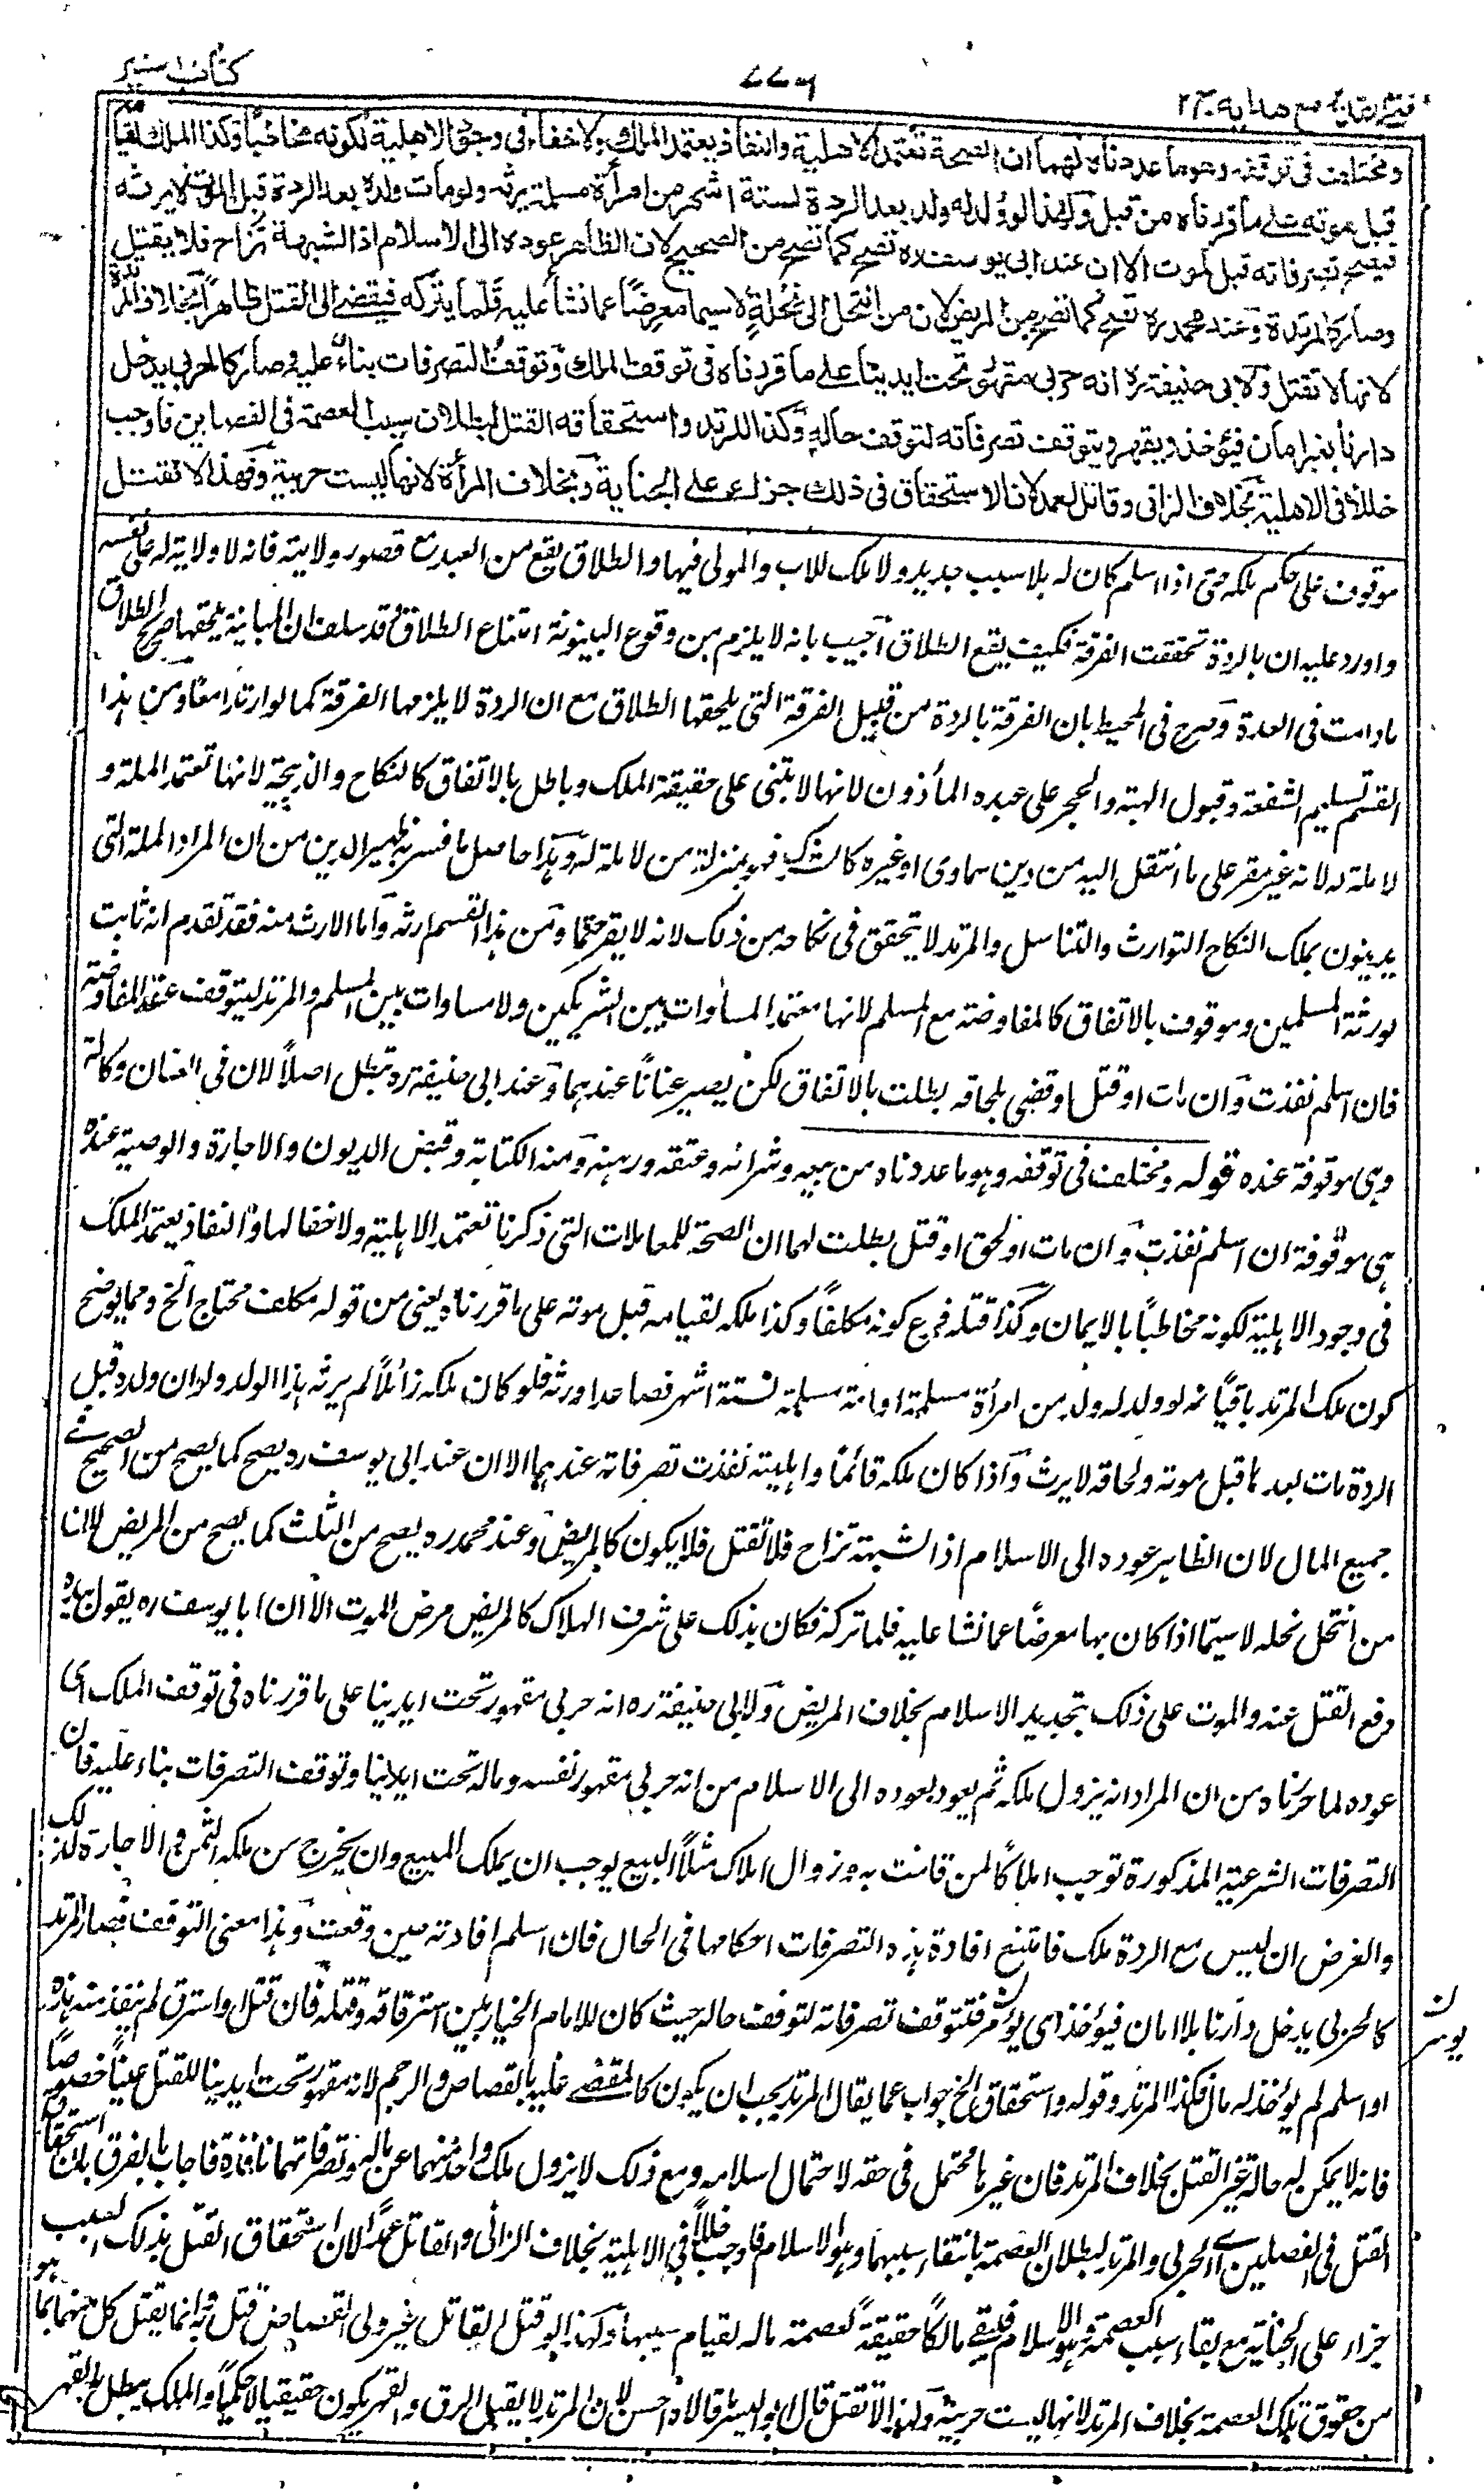 فتح القدير مع هدايه ج ٢
كتاب السير
ومختلف فى توقفه وهو ما عددناه لهما ان الصحة تعتمد الاهلية والنفاذ يعتمد الملك ولاخفاء فى وجود الاهلية لكونه مخاطبا وكذا الملك لقيامه
قبل موته على ما قررناه من قبل ولهذا لو ولد له ولد بعد الردة لستة اشهر من امرأة مسلمة يرثه ولو مات ولده بعد الردة قبل الموت لا يرثه
فيصح تصرفاته قبل الموت الا ان عند ابى يوسف ره تصح كما تصح من الصحيح لان الظاهر عوده الى الاسلام اذ الشبهة تزاح فلا يقتل
وصار كالمرتدة وعند محمد ره تصح كما تصح من المريض لان من انتحل الى نحلة لا سيما معرضا عما نشأ عليه قلما يتركه فيفضى الى القتل ظاهرا بخلاف المرتدة
لانها لا تقتل ولابى حنيفة ره انه حربى مقهور تحت ايدينا على ما قررناه فى توقف الملك وتوقف التصرفات بناء عليه وصار كالحربى يدخل
دارنا بغير امان فيؤخذ ويقهر ويتوقف تصرفاته لتوقف حاله وكذا المرتد واستحقاقه القتل لبطلان سبب العصمة فى الفصلين فاوجب
خللا فى الاهلية بخلاف الزانى وقاتل العمد لان الاستحقاق فى ذلك جزاء على الجناية وبخلاف المرأة لانها ليست حربية ولهذا لا تقتل
موقوف على حكم ملكه حتى اذا اسلم كان له بلا سبب جديد ولا ملك للاب والمولى فيها والطلاق يقع من العبد مع قصور ولايته فانه لا ولاية له على نفسه
واورد عليه ان بالردة تحققت الفرقة فكيف يقع الطلاق اجيب بانه لا يلزم من وقوع البينونة امتناع الطلاق وقد سلف ان المبانة يلحقها صريح الطلاق
مادامت فى العدة وصرح فى المحيط بان الفرقة بالردة من قبيل الفرقة التى يلحقها الطلاق مع ان الردة لا يلزمها الفرقة كما لو ارتدا معا ومن هذا
القسم تسليم الشفعة وقبول الهبة والحجر على عبده المأذون لانها لا تبتنى على حقيقة الملك وباطل بالاتفاق كالنكاح والذبيحة لانها تعتمد الملة و
لا ملة له لانه غير مقر على ما انتقل اليه من دين سماوى او غيره كالشرك فهو بمنزلة من لا ملة له وهذا حاصل ما فسر به ظهير الدين من ان المراد الملة التى
يدينون بملك النكاح التوارث والتناسل والمرتد لا يتحقق فى نكاحه من ذلك لانه لا يقر حتما ومن هذا القسم ارثه واما الارث منه فقد تقدم انه ثابت
لورثة المسلمين وموقوف بالاتفاق كالمفاوضة مع المسلم لانها معتمد المساوات بين الشريكين ولا مساوات بين المسلم والمرتد ليتوقف عقد المفاوضة
فان اسلم نفذت وان مات او قتل او قضى بلحاقه بطلت بالاتفاق لكن يصير عنانا عندهما وعند ابى حنيفة ره تبطل اصلا لان فى العنان وكالة
وهى موقوفة عنده قوله ومختلف فى توقفه وهو ما عددناه من بيعه وشرائه وعتقه ورهنه ومنه الكتابة وقبض الديون والاجارة والوصية عنده
هى موقوفة ان اسلم نفذت وان مات او لحق او قتل بطلت لهما ان الصحة للمعاملات التى ذكرنا تعتمد الاهلية ولا خفا لها والنفاذ يعتمد الملك
فى وجود الاهلية لكونه مخاطبا بالايمان وكذا قتله فرع كونه مكلفا وكذا ملكه لقيامه قبل موته على ما قررناه يعنى من قوله مكلف محتاج الخ ومما يوضح
كون ملك المرتد باقيا انه لو ولد له ولد من امرأة مسلمة او امة مسلمة لستة اشهر فصاعدا ورثه فلو كان ملكه زائلا لم يرثه هذا الولد ولو ان ولده قبل
الردة مات بعدها قبل موته ولحاقه لا يرث واذا كان ملكه قائما واهليته نفذت تصرفاته عندهما الا ان عند ابى يوسف ره يصح كما يصح من الصحيح من
جميع المال لان الظاهر عوده الى الاسلام اذ الشبهة تزاح فلا تقتل فلا يكون كالمريض وعند محمد ره يصح من الثلث كما يصح من المريض لان
من انتحل نحله لا سيما اذا كان بها معرضا عما نشا عليه قلما تركه فكان بذلك على شرف الهلاك كالمريض مرض الموت الا ان ابا يوسف ره يقول بيده
دفع القتل عنه والموت على ذلك بتجديد الاسلام بخلاف المريض ولابى حنيفة ره انه حربى مقهور تحت ايدينا على ما قررناه فى توقف الملك اى
عوده لما حررناه من ان المراد انه يزول ملكه ثم يعود بعوده الى الاسلام من انه حربى مقهور نفسه وماله تحت ايدينا وتوقف التصرفات بناء عليه فان
التصرفات الشرعية المذكورة توجب املاكا لمن قامت به وزوال املاك مثلا البيع يوجب ان يملك المبيع وان يخرج من ملكه الثمن والاجارة كذلك
والغرض ان ليس مع الردة ملك فامتنع افادة هذه التصرفات احكامها فى الحال فان اسلم افادته حين وقعت وهذا معنى التوقف فصار المرتد
كالحربى يدخل دارنا بلا امان فيؤخذ اى يؤسر فتتوقف تصرفاته لتوقف حاله حيث كان للامام الخيار بين استرقاقه وقتله فان قتل او استرق لم ينفذ منه هذه
او اسلم لم يؤخذ له مال فكذا المرتد وقوله واستحقاق الخ جواب عما يقال المرتد يجب ان يكون كالمقضى عليه بالقصاص والرجم لانه مقهور تحت ايدينا للقتل عينا خصوصا
فانه لا يمكن له حالة غير القتل بخلاف المرتد فان غيرها محتمل فى حقه لاحتمال اسلامه ومع ذلك لا يزول ملك واحد منهما عن ماله وتصرفاتهما نافذة فاجاب بالفرق بان استحقاق
القتل فى الفصلين اى الحربى والمرتد لبطلان العصمة بانتفاء سببها وهو الاسلام فاوجب خللا فى الاهلية بخلاف الزانى والقاتل عمدا لان استحقاق القتل بذلك السبب
جزاء على الجناية مع بقاء سبب العصمة وهو الاسلام فيبقى مالكا حقيقة لعصمة ماله لقيام سببها ولهذا لو قتل القاتل غير ولى القصاص قتل به وانما يقتل كل منهما بما هو
من حقوق تلك العصمة بخلاف المرتد لانها ليست حربية ولهذا لا تقتل قال ابو اليسر ما قالاه احسن لان المرتد لا يقبل الرق والقهر يكون حقيقيا لا حكميا والملك يبطل بالقهر